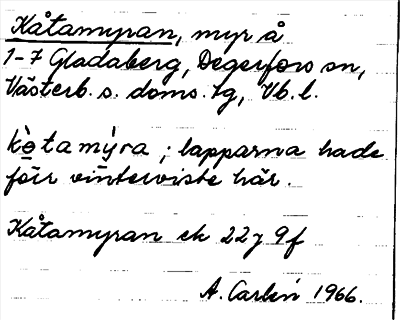 Kåtamyran, myr å
1-7 Gladaberg, Degerfors sn,
Västerb. s. doms. tg, Vb. l.
kò̱ta mýra ; lapparna hade
förr vinterviste här.
Kåtamyran ek 22 J 9 f
A. Carlén 1966.